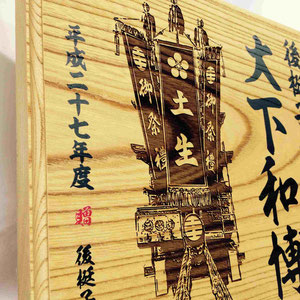 後梃子
大下和博
御祭禮
土生
御祭禮
平成二十七年度
贈 後梃子